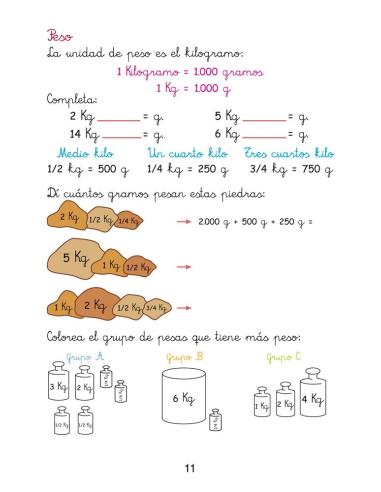 Peso
La unidad de peso es el kilogramo:
1 Kilogramo = 1.000 gramos
1 Kg = 1.000 g
Completa:
2 Kg ________ = g. 5 Kg ________ = g.
14 Kg ________ = g. 6 Kg ________ = g.
Medio kilo Un cuarto kilo Tres cuartos kilo
1/2 kg = 500 g 1/4 kg = 250 g 3/4 kg = 750 g
Di cuántos gramos pesan estas piedras:
2 Kg 1/2 Kg 1/4 Kg → 2.000 g + 500 g + 250 g =
5 Kg 1 Kg 1/2 Kg →
1 Kg 2 Kg 1/2 Kg 3/4 Kg →
Colorea el grupo de pesas que tiene más peso:
Grupo A Grupo B Grupo C
3 Kg 2 Kg 6 Kg 1 Kg 2 Kg 4 Kg
1/2 Kg 1/2 Kg
11